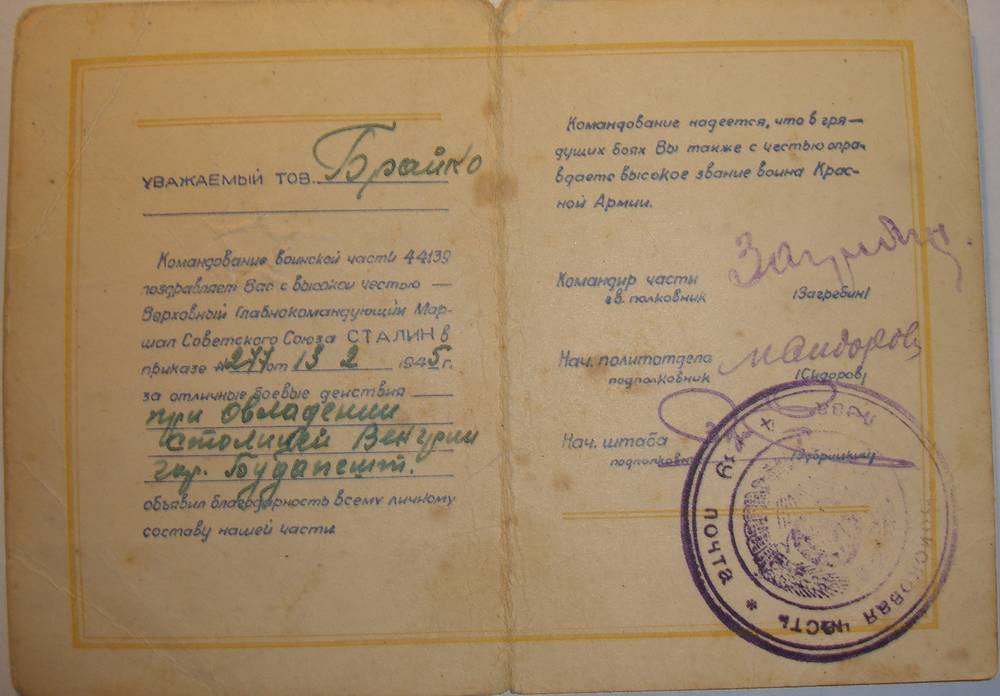 УВАЖАЕМЫЙ ТОВ. Брайко
Командование воинской части 44139
поздравляет Вас с высокой честью —
Верховный Главнокомандующий Мар-
шал Советского Союза СТАЛИН в
приказе № 277 от 13 2 1945 г.
за отличные боевые действия
при овладении
столицей Венгрии
гор. Будапешт.
объявил благодарность всему личному
составу нашей части.
Командование надеется, что в гря—
дущих боях Вы также с честью опра-
вдаете высокое звание воина Крас-
ной Армии.
Командир части
гв. полковник
/Загребин/
Нач. политотдела
подполковник
/Сидоров/
Нач. штаба
подполковник
полевая почта * войсковая часть